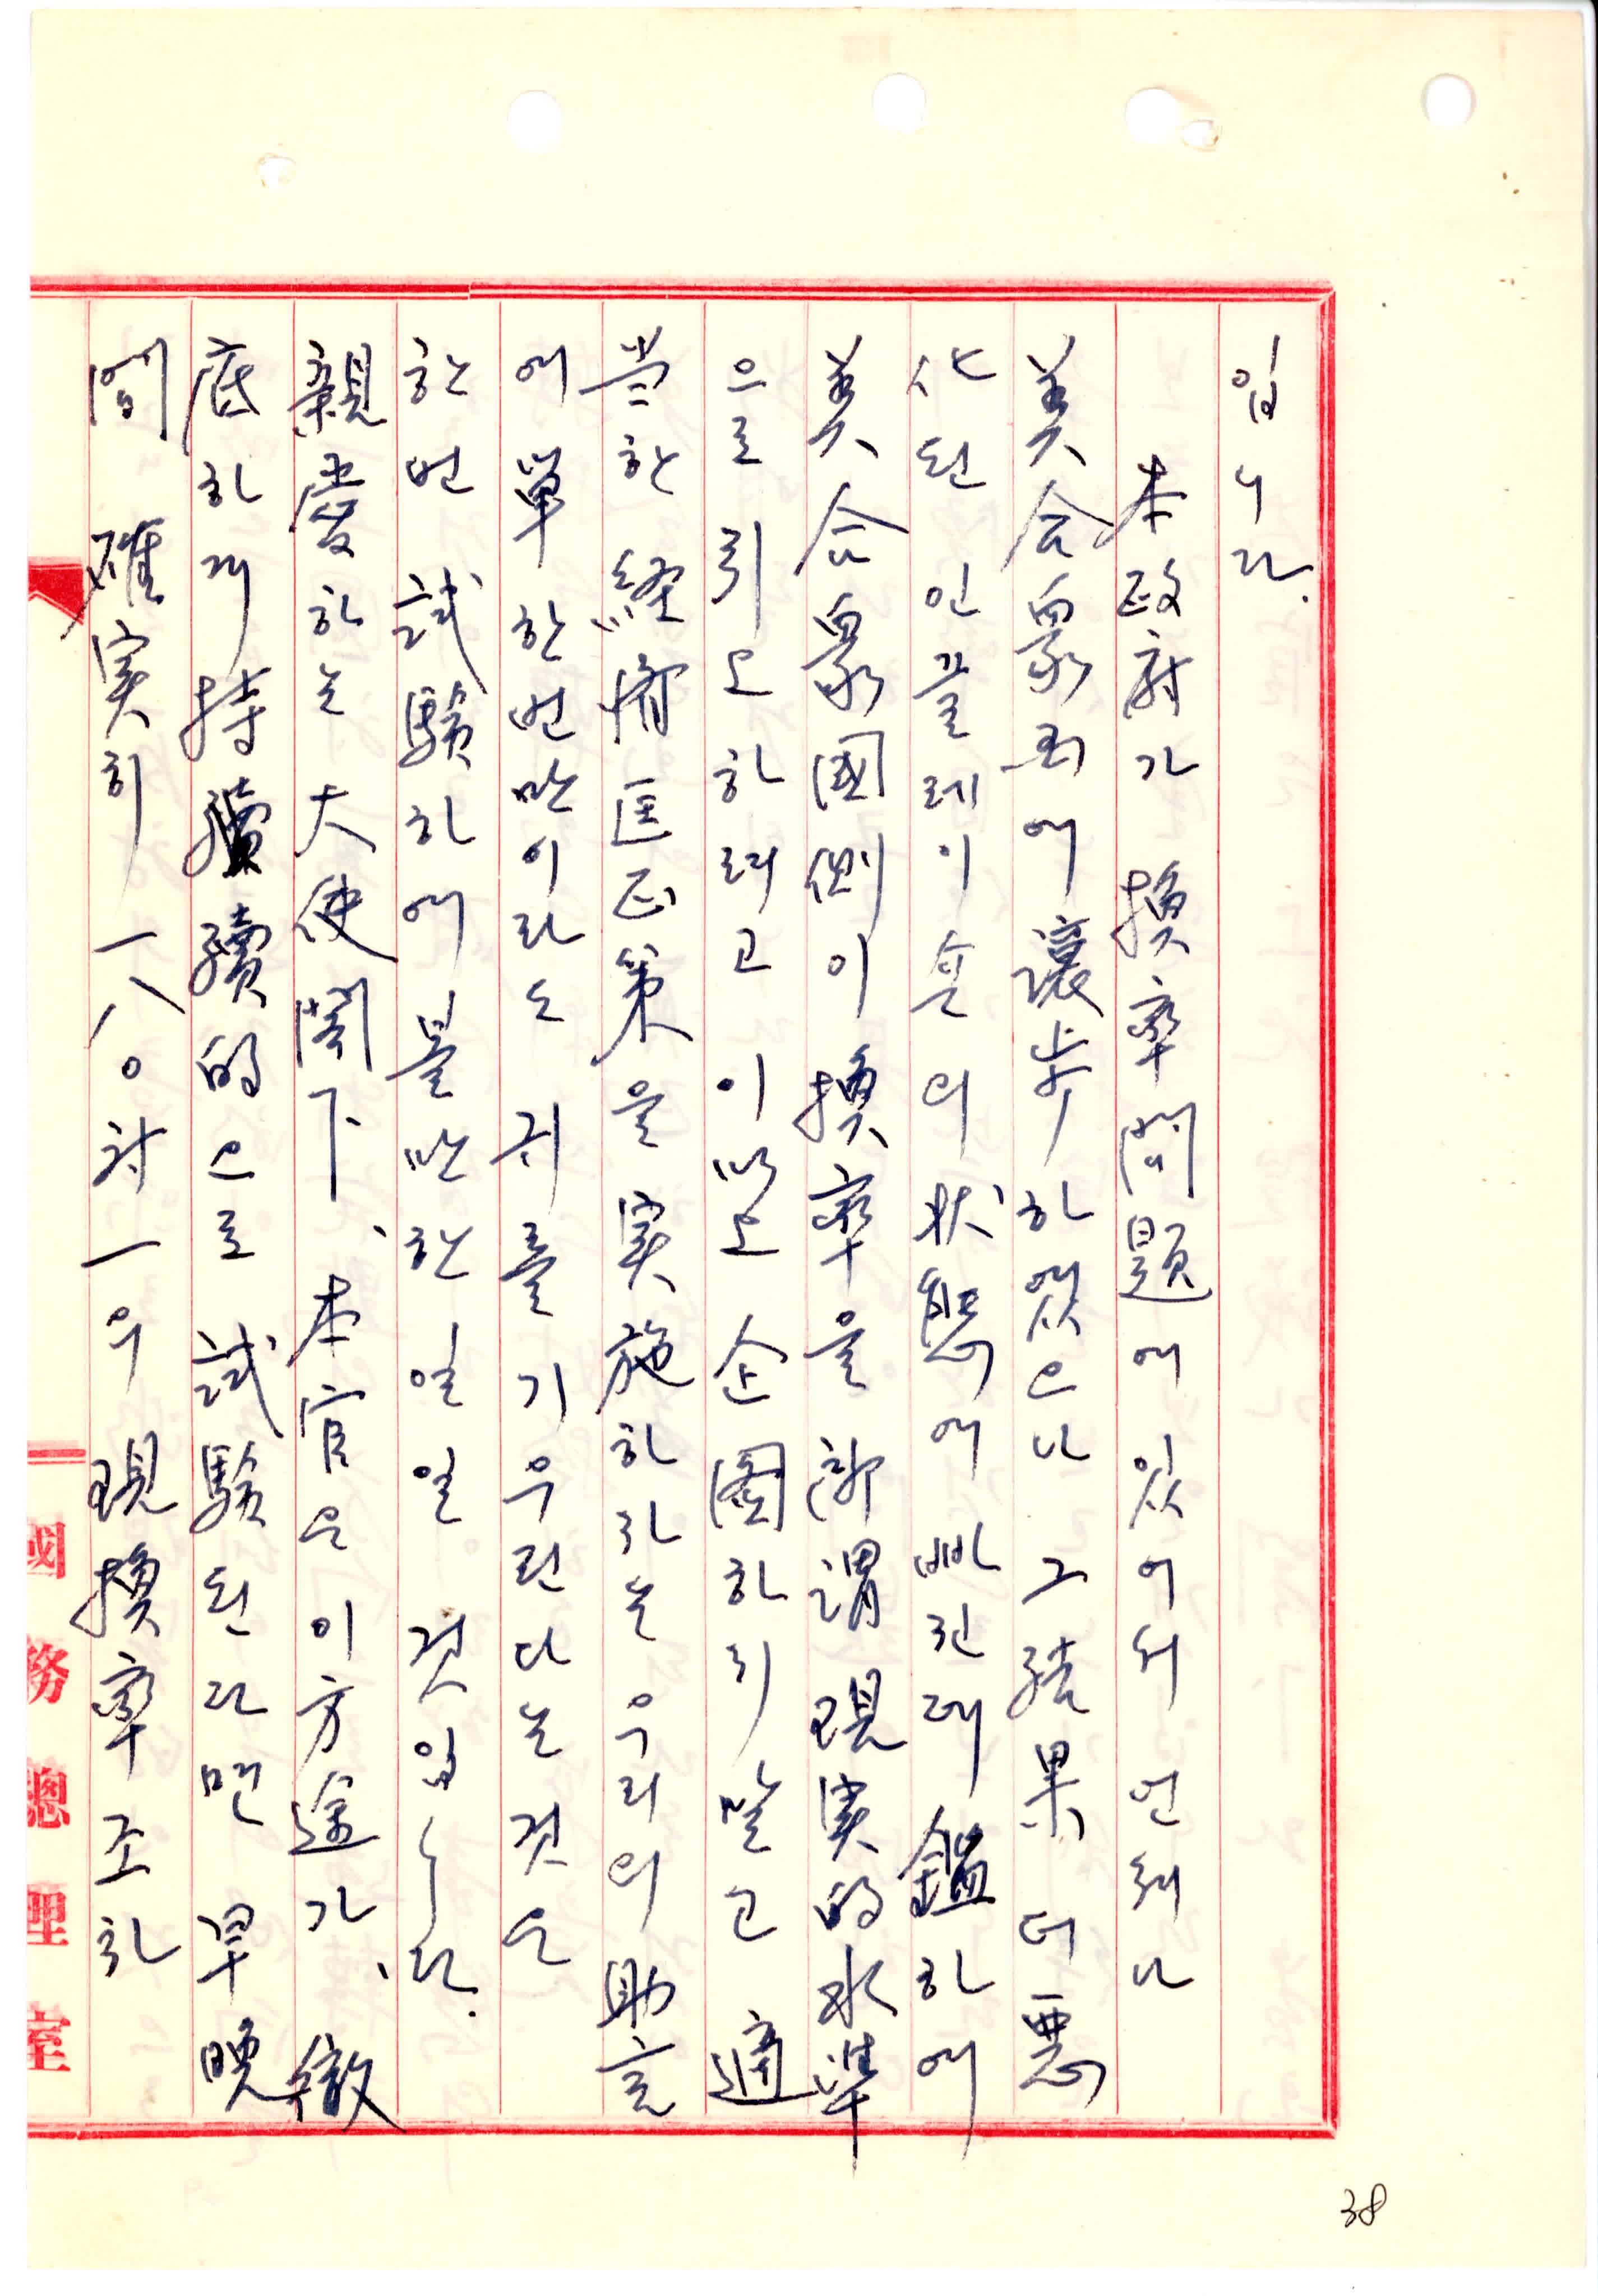 입니다.
本政府가 換率問題에 있어서 언제나
美合衆國에 讓步하였으나 그 結果 더 惡
化된 인플레이숀의 狀態에 빠진데 鑑하여
美合衆國側이 換率을 所謂 現実的 水準
으로 引上하려고 이 以上 企圖하지 말고 適
당한 経済匡正策을 実施하라는 우리의 助言
에 單 한번만이라도 귀를 기우린다는 것은
한번 試驗하여 볼만한 일일 것입니다.
親愛하는 大使閣下、本官은 이 方途가、徹
底하게 持續的으로 試驗된다면 早晩
間 確実히 一八〇対一의 現換率조차
國務總理室
38